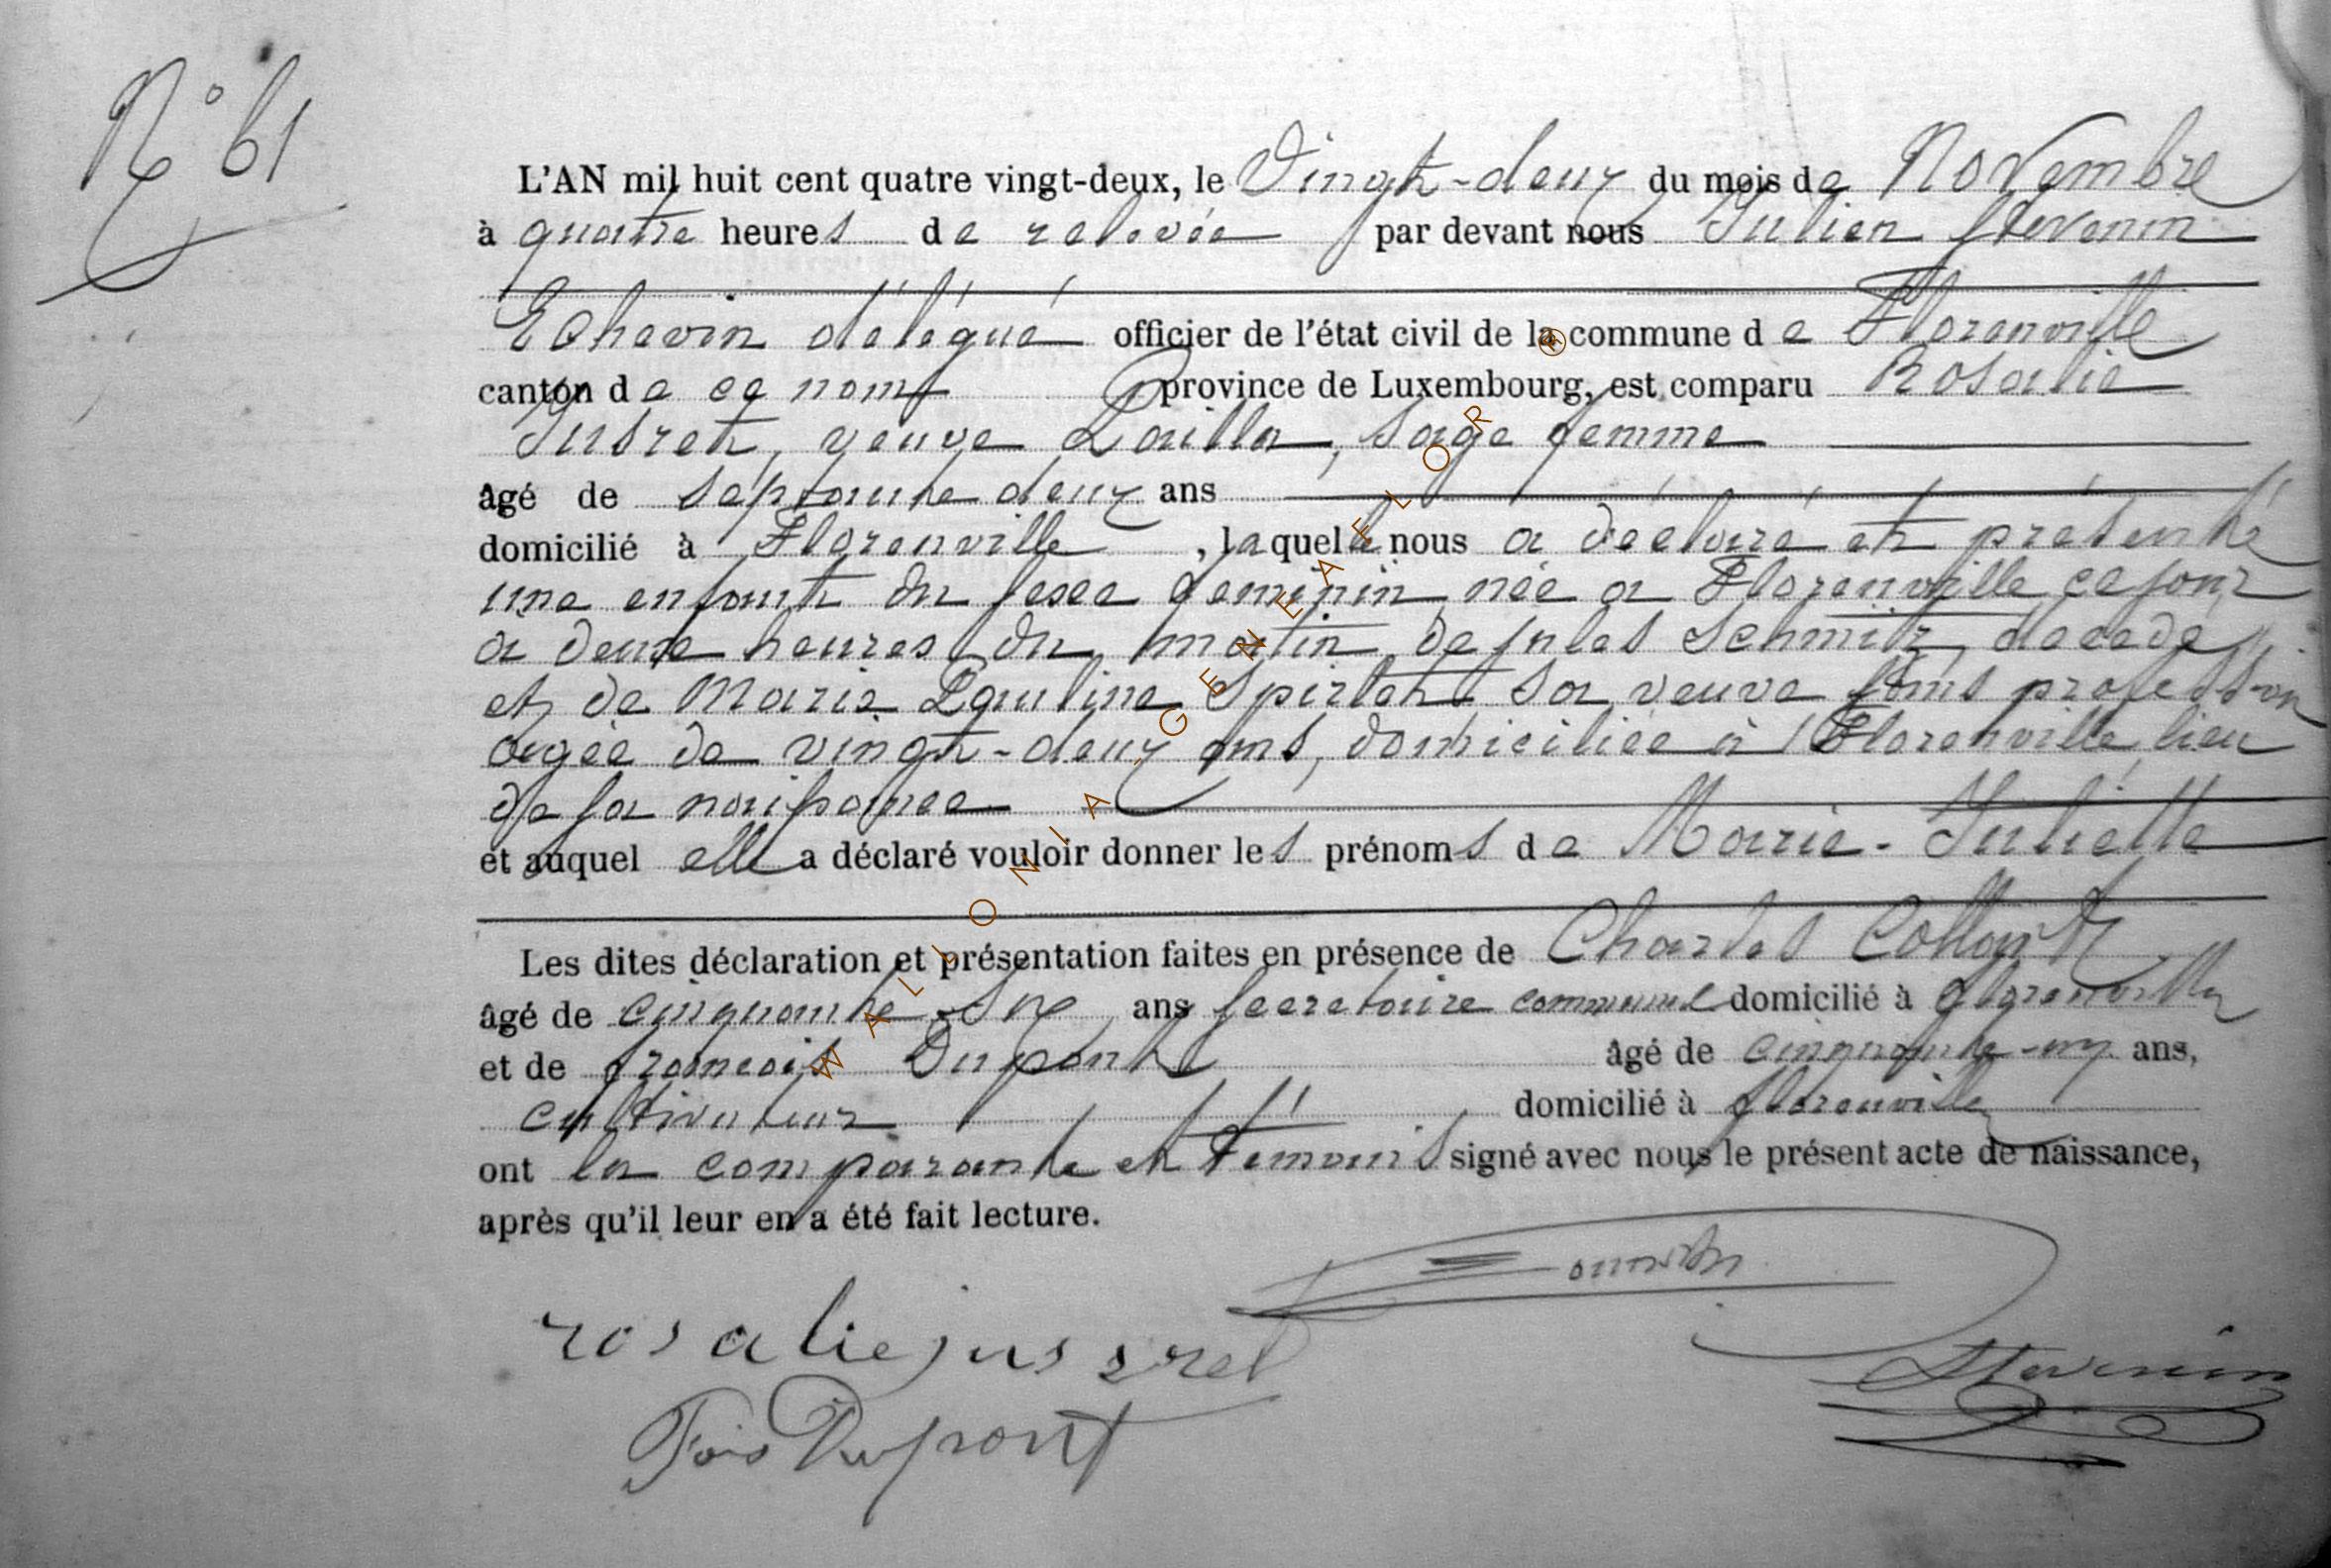 N° 61
L'AN mil huit cent quatre vingt-deux, le Vingt-deux du mois de Novembre
à quatre heures de relevée par devant nous Julien Stevenin
Echevin délégué officier de l'état civil de la commune de Florenville
canton de ce nom province de Luxembourg, est comparu Rosalie
Jusret, veuve Lailla, sage femme
âgé de septante deux ans
domicilié à Florenville, laquelle nous a déclaré et présenté
une enfant du sexe feminin née a Florenville ce jour
à deux heures du matin de Jules Schmitz, décédé
et de Marie Pauline Spirlet sa veuve sans profession
agée de vingt-deux ans, domiciliée à Florenville lieu
de sa naissance
et auquel elle a déclaré vouloir donner les prénoms de Marie-Juliette
Les dites déclaration et présentation faites en présence de Charles Collart
âgé de cinquante-six ans secretaire communal domicilié à florenville
et de francois Dupont âgé de cinquante-un ans,
cultivateur domicilié à florenville
ont la comparante et témoins signé avec nous le présent acte de naissance,
après qu'il leur en a été fait lecture.
rosalie jusrel
Stevenin
Fois Dupont
WALLONIA GENEAFLOR ®